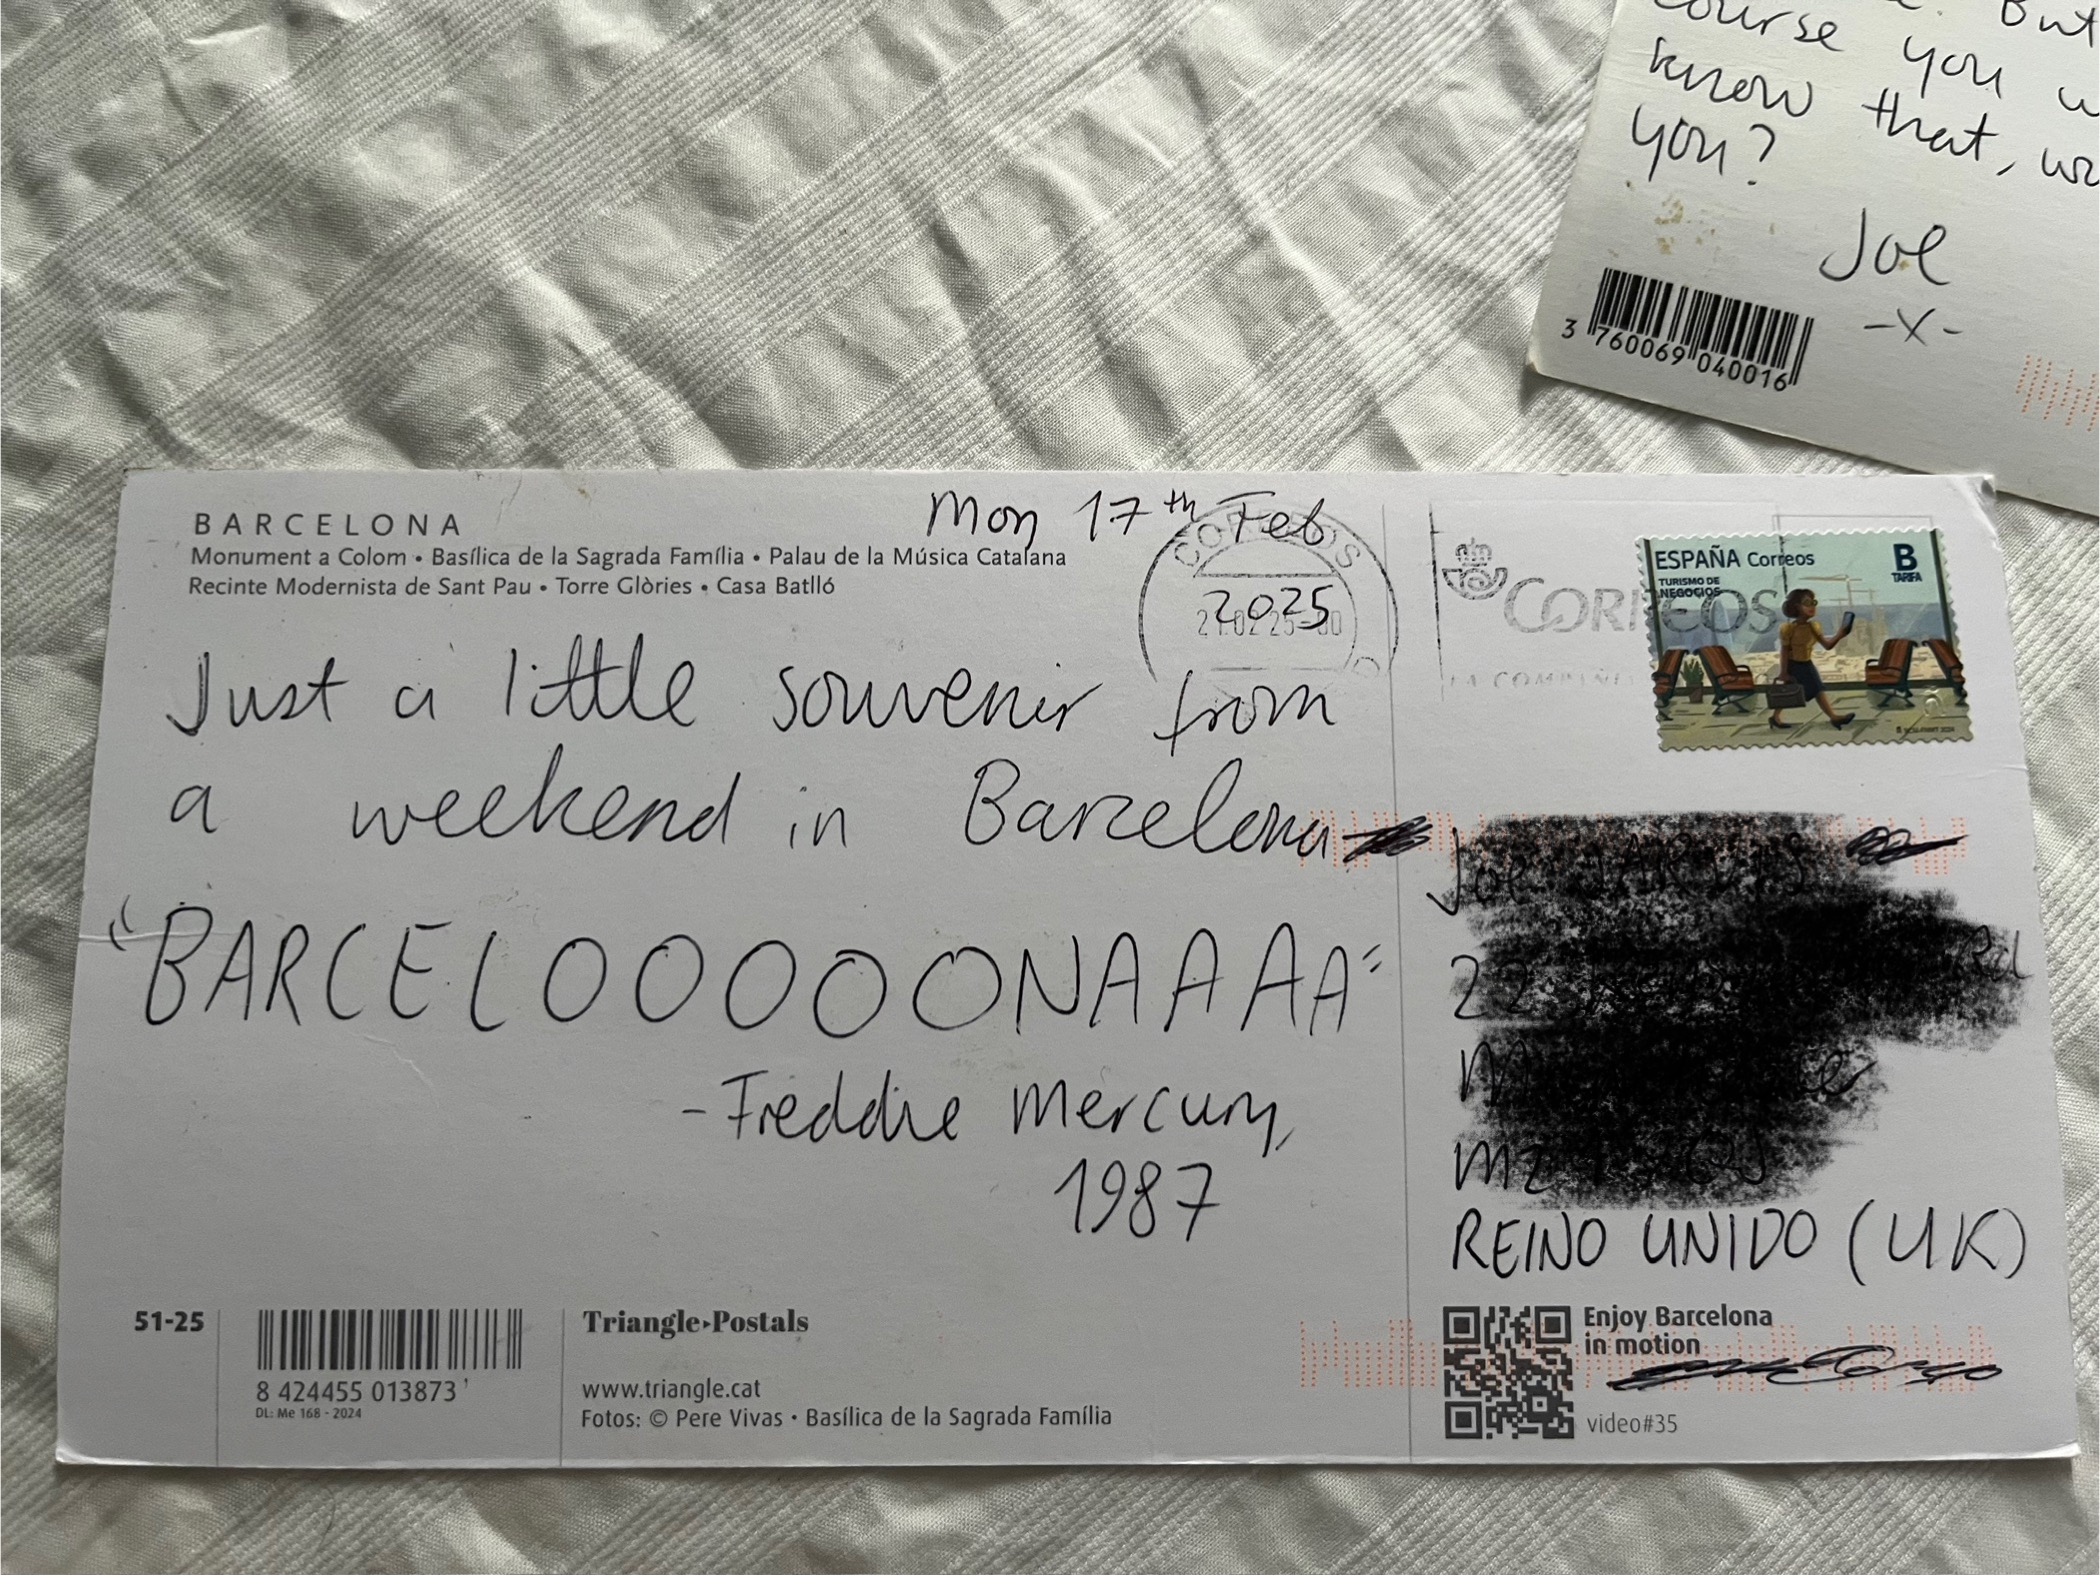 But
course you
know that,
you?
Joe
-x-
3 760069 040016
BARCELONA
Monument a Colom • Basílica de la Sagrada Família • Palau de la Música Catalana
Recinte Modernista de Sant Pau • Torre Glòries • Casa Batlló
Mon 17th Feb
2025
CORREOS
CORREOS
LA COMPAÑÍ
ESPAÑA Correos
TURISMO DE
NEGOCIOS
B
TARIFA
Just a little souvenir from
a weekend in Barcelona
"BARCELOOOOONAAAA"
-Freddie Mercury,
1987
REINO UNIDO (UK)
51-25
8 424455 013873
DL: Me 168 - 2024
Triangle▸Postals
www.triangle.cat
Fotos: © Pere Vivas • Basílica de la Sagrada Família
Enjoy Barcelona
in motion
video#35